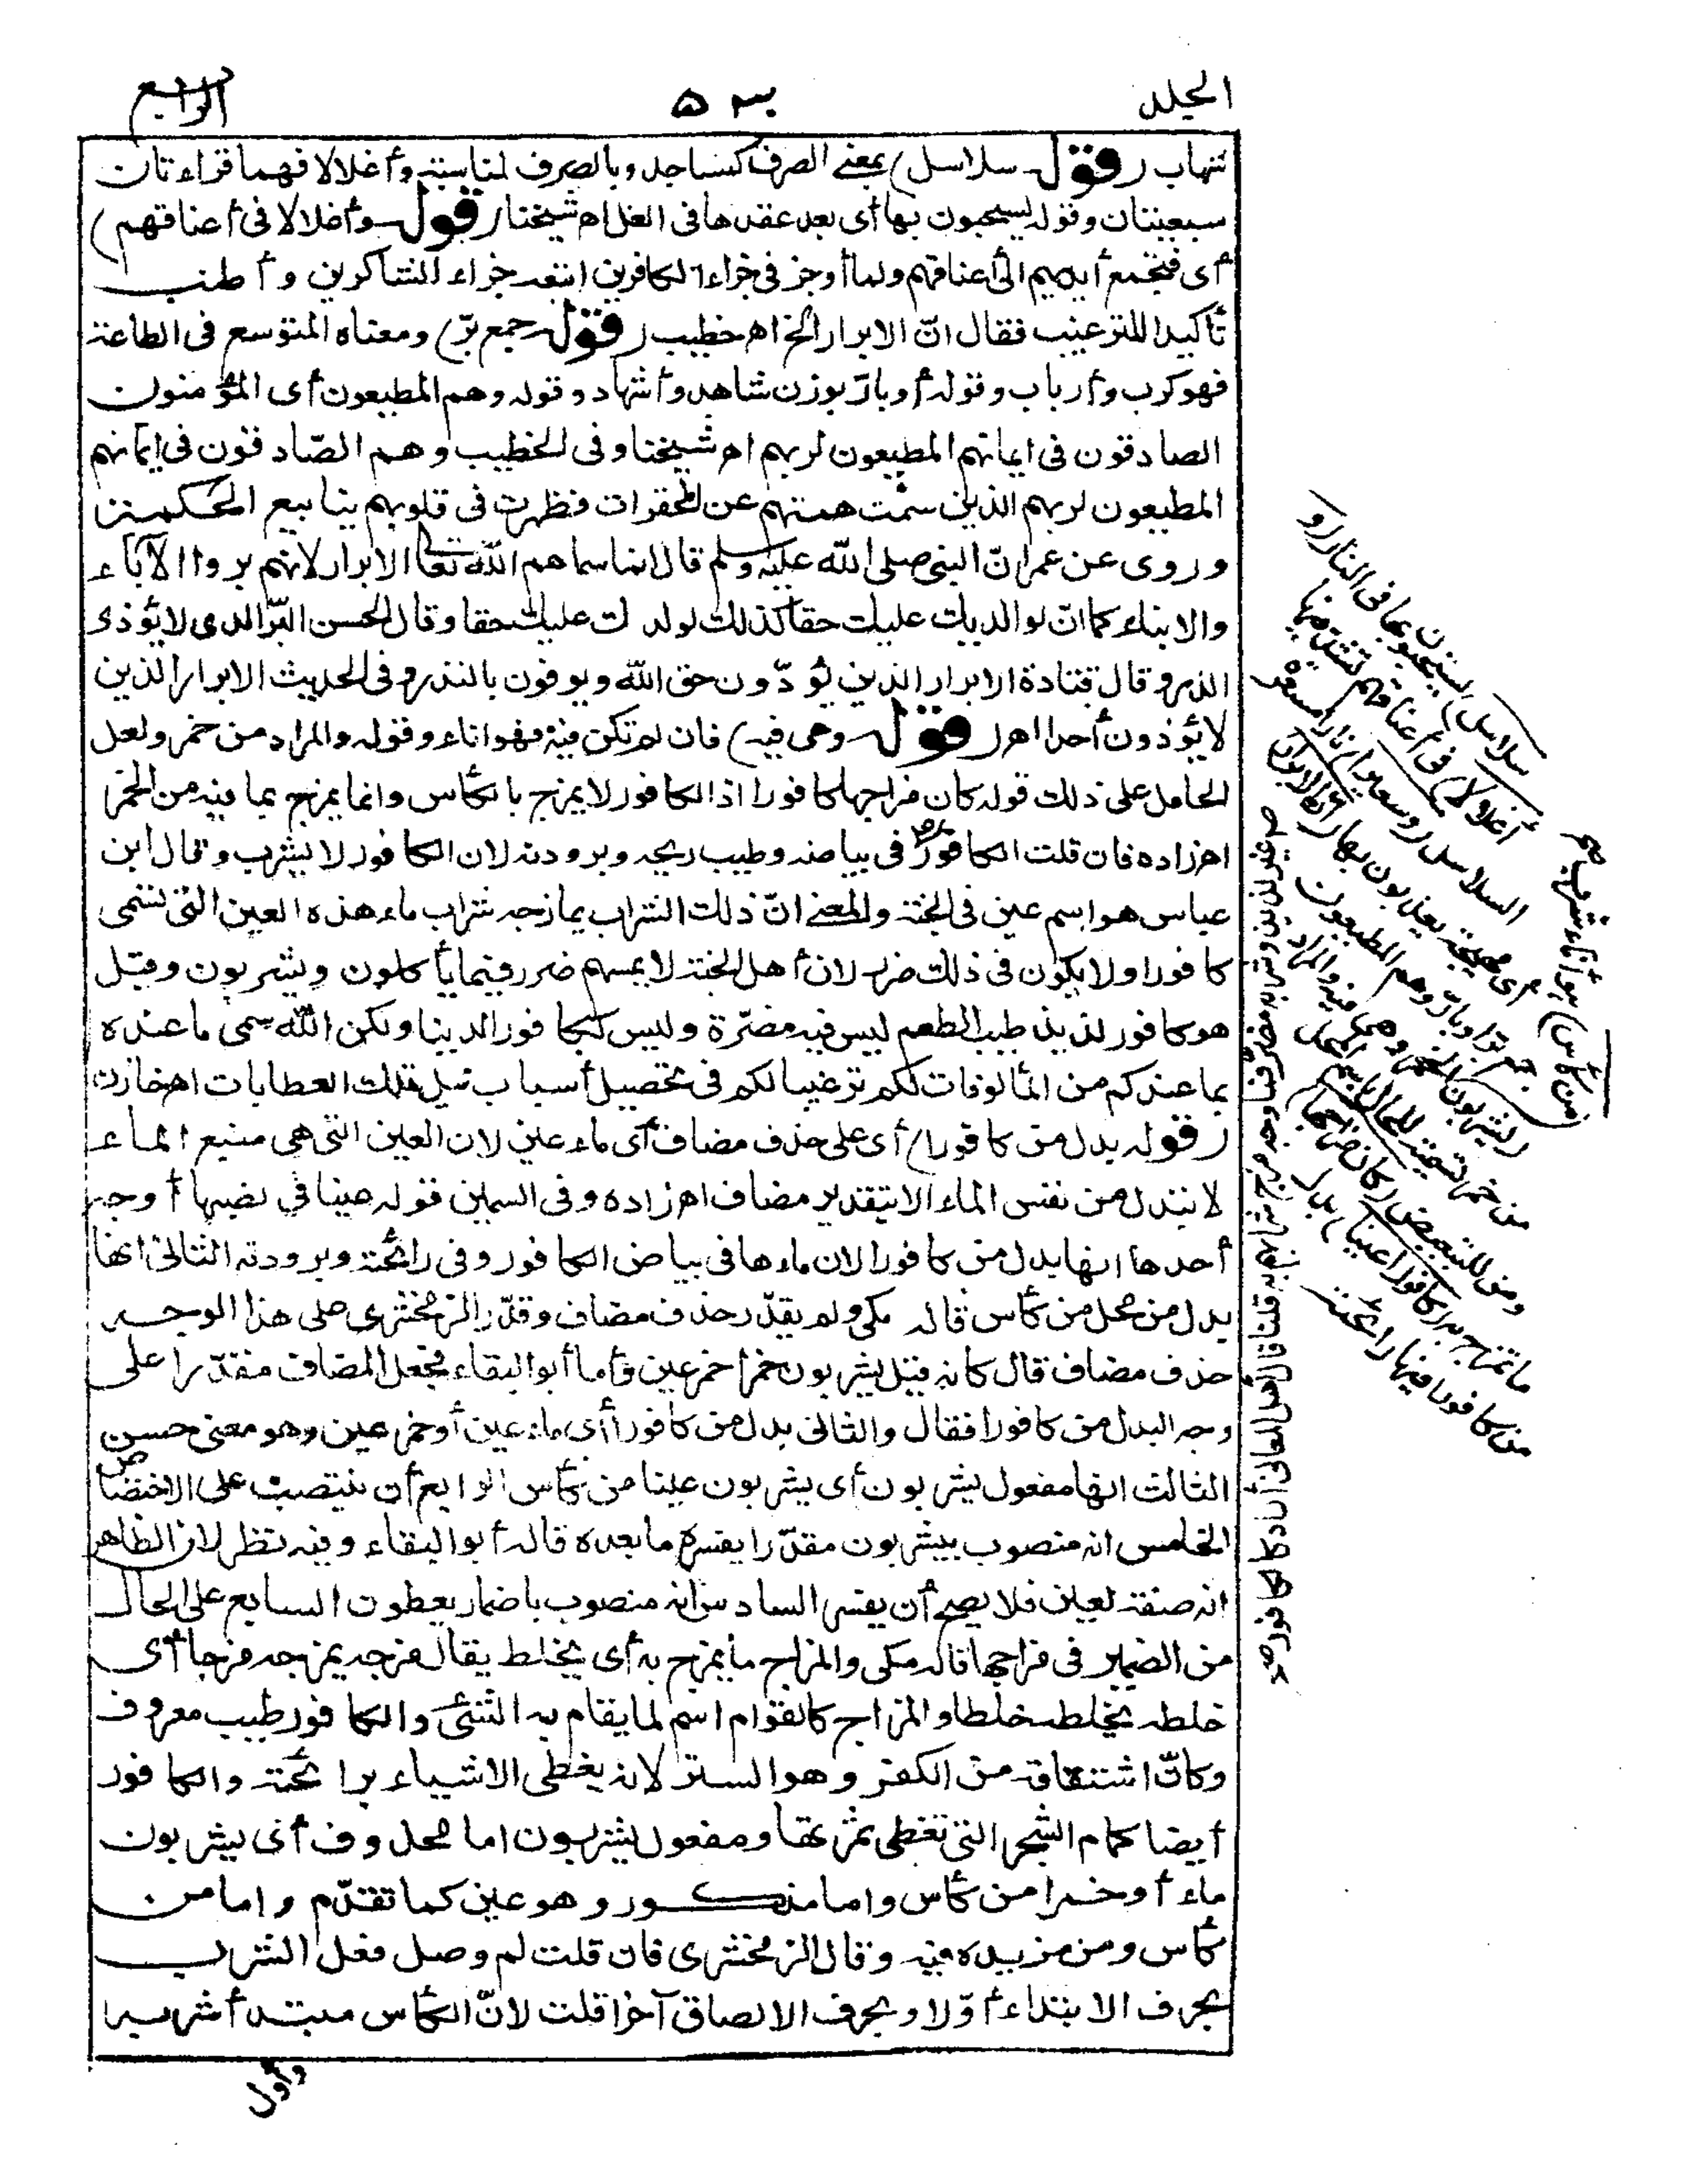 الجلد
الرابع
تنهاب (قوله سلاسل) بمعنى الصرف كمساجد وبالصرف لمناسبة وأغلالا فهما قراءتان
سبعيتان وقوله يسحبون بها أى بعد عقدها فى الغل اه شيخنا (قوله وأغلالا فى أعناقهم)
أى فتجمع أيديهم الى أعناقهم ولما أوجز فى جزاء الكافرين اتبعه جزاء الشاكرين وأطنب
تأكيدا للترغيب فقال انّ الابرار الخ اه خطيب (قوله جمع برّ) ومعناه المتوسع فى الطاعة
فهو كرب وأرباب وقوله أو بارّ بوزن شاهد وأشهاد وقوله وهم المطيعون أى المؤمنون
الصادقون فى ايمانهم المطيعون لربهم اه شيخنا وفى الخطيب وهم الصّادقون فى ايمانهم
المطيعون لربهم الذين سمت همتهم عن المحقرات فظهرت فى قلوبهم ينابيع الحكمة
وروى عن عمر انّ النبى صلى الله عليه وسلم قال انما سماهم الله تعالى الابرار لانهم بروا الآباء
والابناء كما انّ لوالديك عليك حقا كذلك لولدك عليك حقا وقال الحسن البرّ الذى لا يؤذى
الذر وقال قتادة الابرار الذين يؤدّون حق الله ويوفون بالنذر وفى الحديث الابرار الذين
لا يؤذون أحدا اه (قوله وهى فيه) فان لم تكن فيه فهو اناء وقوله والمراد من خمر ولعل
الحامل على ذلك قوله كان مزاجها كافورا اذ الكافور لا يمزج بالكأس وانما يمزج بما فيه من الخمر
اه زاده فان قلت الكافور فى بياضه وطيب ريحه وبرودته لان الكافور لا يشرب وقال ابن
عباس هو اسم عين فى الجنة والمعنى انّ ذلك الشراب يمازجه شراب ماء هذه العين التى تسمى
كافورا ولا يكون فى ذلك ضرر لان أهل الجنة لا يمسهم ضرر فيما يأكلون ويشربون وقيل
هو كافور لذيذ طيب الطعم ليس فيه مضرّة وليس ككافور الدنيا ولكن الله سمى ما عنده
بما عندكم من المألوفات لكم ترغيبا لكم فى تحصيل أسباب نيل تلك العطايات اه خازن
(قوله بدل من كافورا) أى على حذف مضاف أى ماء عين لان العين التى هى منبع الماء
لا تبدل من نفس الماء الا بتقدير مضاف اه زاده وفى السمين قوله عينا فى نصبها أوجه
أحدها انها بدل من كافورا لان ماءها فى بياض الكافور وفى رائحته وبرودته الثانى انها
بدل من محل من كأس قاله مكى ولم يقدّر حذف مضاف وقدّر الزمخشرى على هذا الوجه
حذف مضاف قال كانه قيل يشربون خمرا خمر عين وأما أبو البقاء فجعل المضاف مقدّرا على
وجه البدل من كافورا فقال والثانى بدل من كافورا أى ماء عين أو خمر عين وهو معنى حسن
الثالث انها مفعول يشربون أى يشربون عينا من كأس الرابع أن ينتصب على الاختصاص
الخامس انه منصوب بيشربون مقدّرا يفسره ما بعده قاله أبو البقاء وفيه نظر لان الظاهر
انه صفة لعين فلا يصح أن يفسر السادس انه منصوب باضمار يعطون السابع على الحال
من الضمير فى مزاجها قاله مكى والمزاج ما يمزج به أى يخلط يقال مزجه يمزجه مزجا أى
خلطه يخلطه خلطا والمزاج كالقوام اسم لما يقام به الشئ والكافور طيب معروف
وكانّ اشتقاقه من الكفر وهو الستر لانه يغطى الاشياء برائحته والكافور
أيضا كمام الشجر التى تغطى ثمرتها ومفعول يشربون اما محذوف أى يشربون
ماء أو خمرا من كأس واما مذكور وهو عين كما تقدّم واما من
كأس ومن مزيدة فيه وقال الزمخشرى فان قلت لم وصل فعل الشرب
بحرف الابتداء أوّلا وبحرف الالصاق آخرا قلت لانّ الكأس مبتدأ شربه
وأول
سلاسل) يسحبون بها فى النار (و
أغلالا) فى أعناقهم تشد فيها
السلاسل (وسعيرا) نارا مسعرة
أى مهيجة يعذبون بها (انّ الابرار)
جمع برّ أو بارّ وهم المطيعون
(يشربون من كأس) هو اناء شرب الخمر
وهى فيه والمراد
من خمر تسمية للحال باسم المحل
ومن للتبعيض (كان مزاجها)
ما تمزج به (كافورا عينا) بدل
من كافورا فيها رائحته